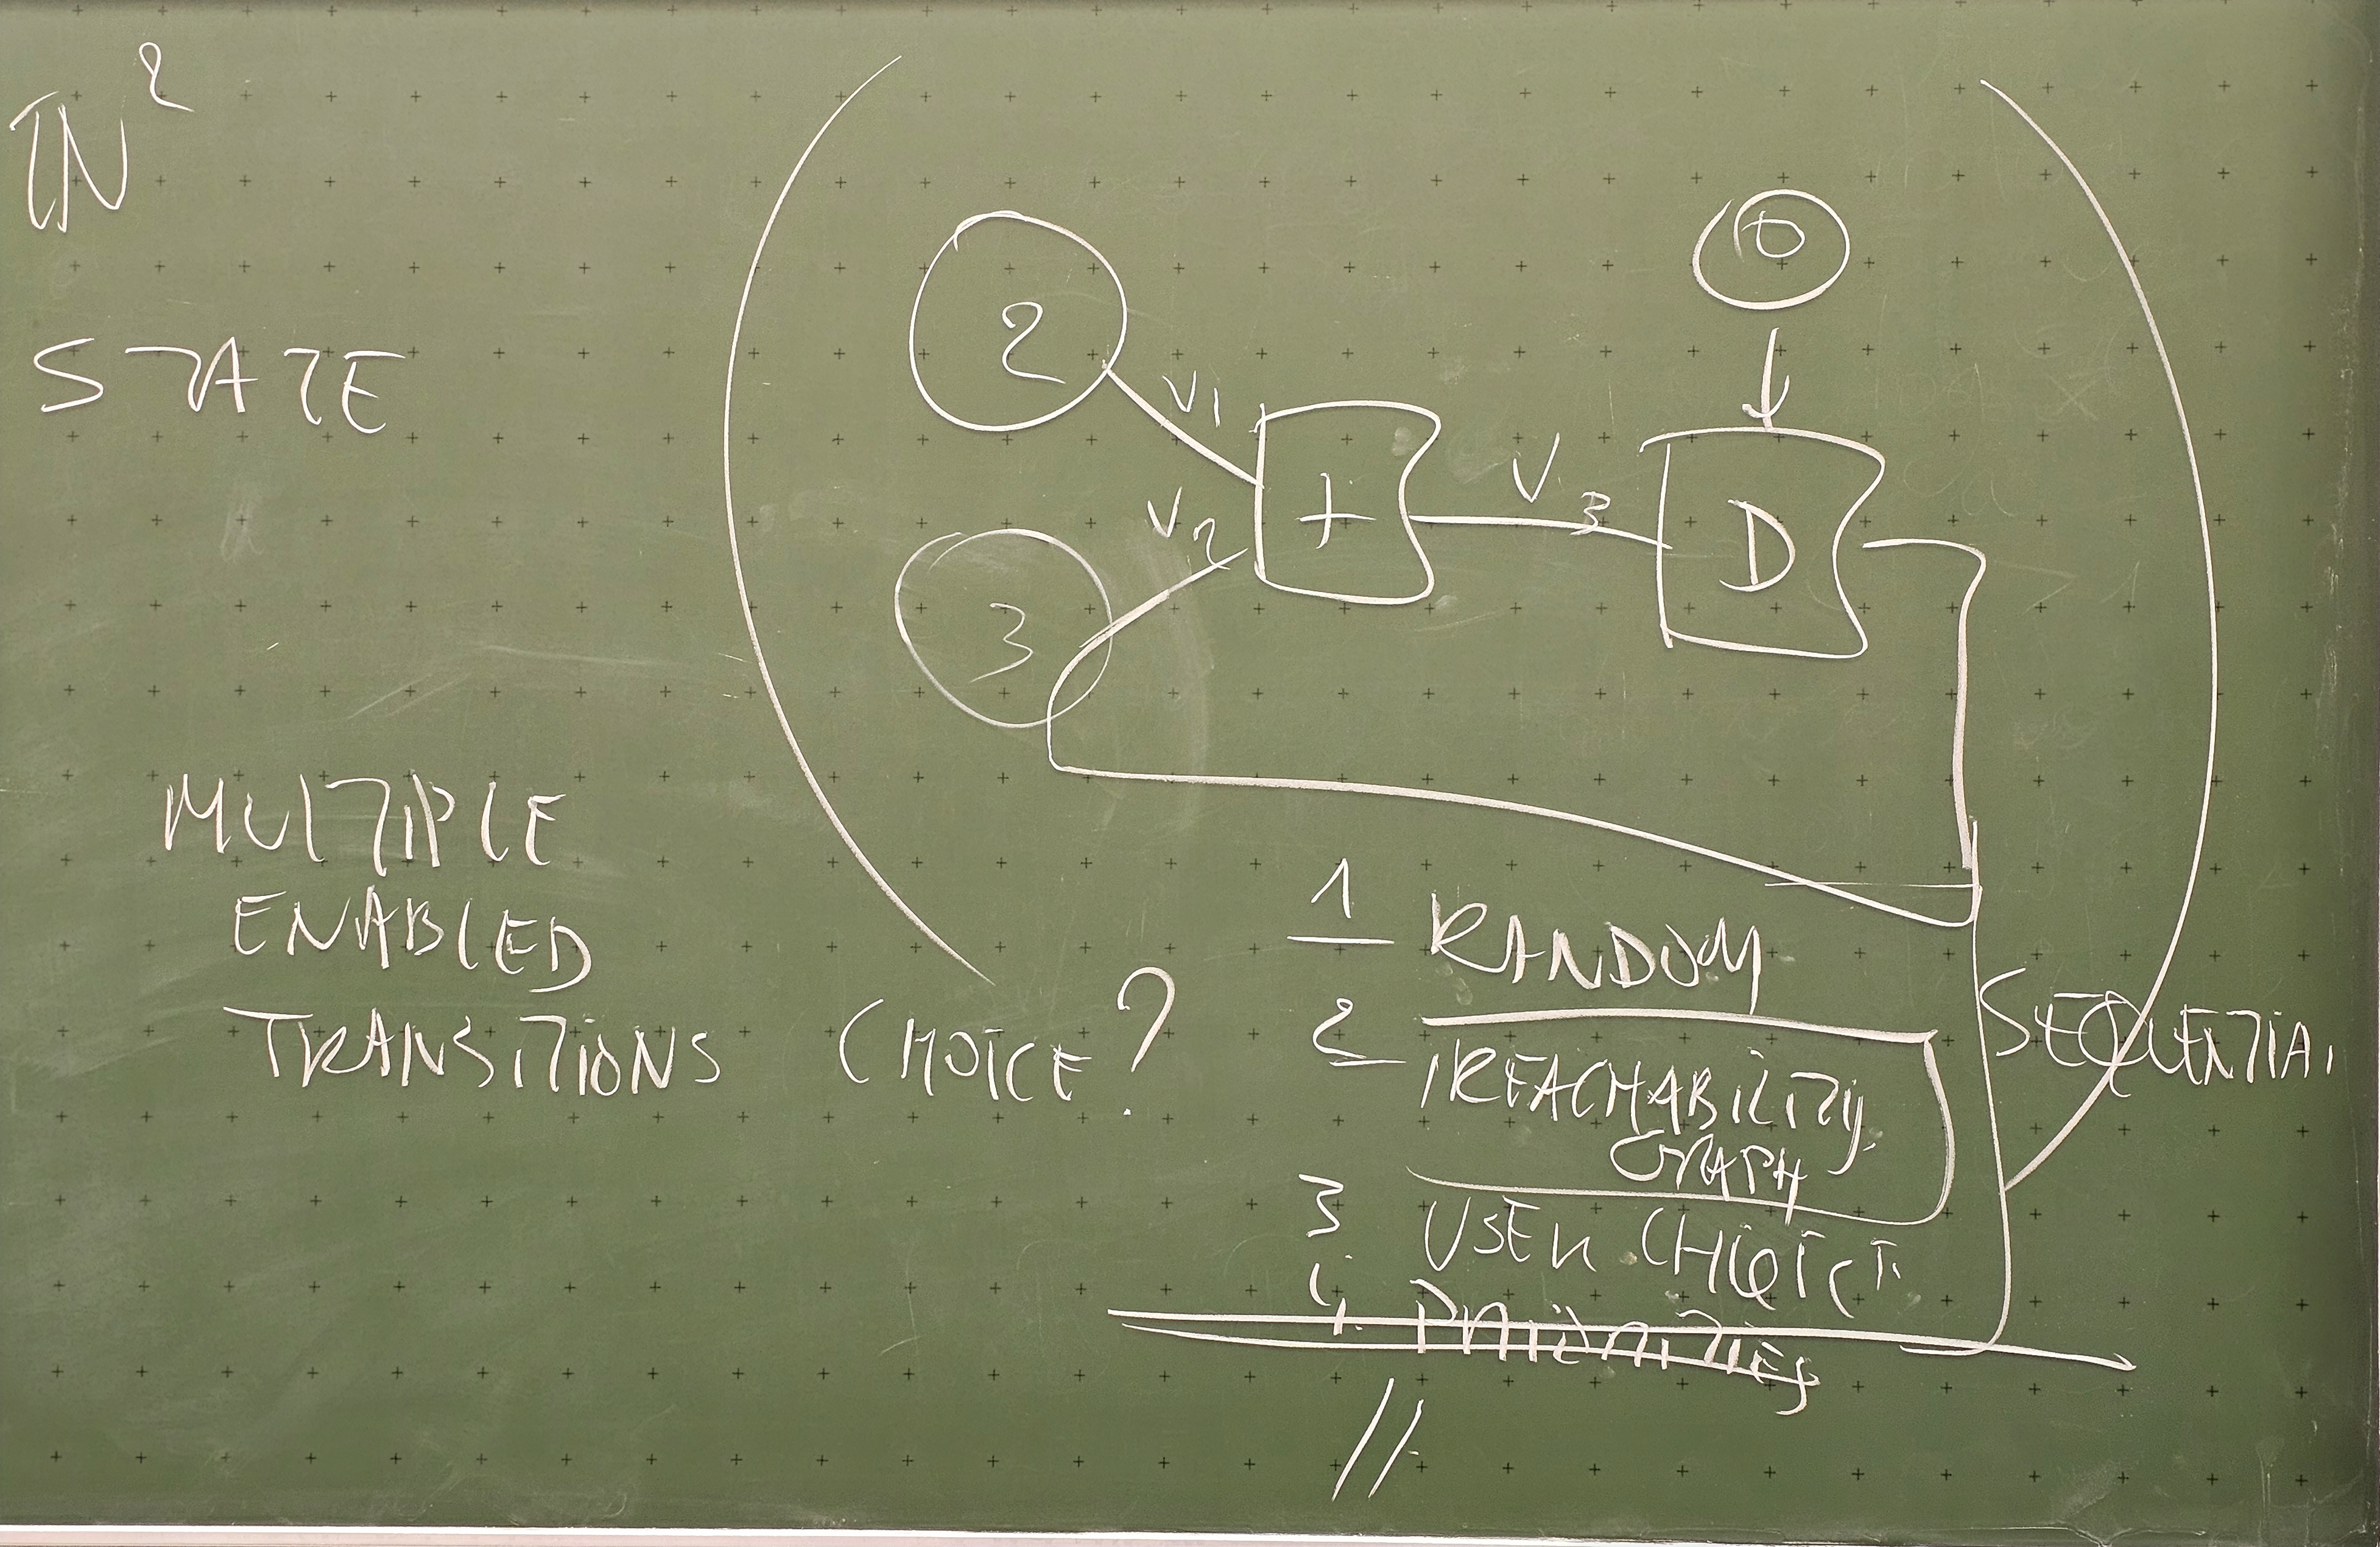 ℕ²
STATE
2
V1
3
V2
+
V3
0
D
MULTIPLE
ENABLED
TRANSITIONS CHOICE?
1 RANDOM
2 REACHABILITY
GRAPH
3 USER CHOICE
4. PRIORITIES
SEQUENTIAL
//